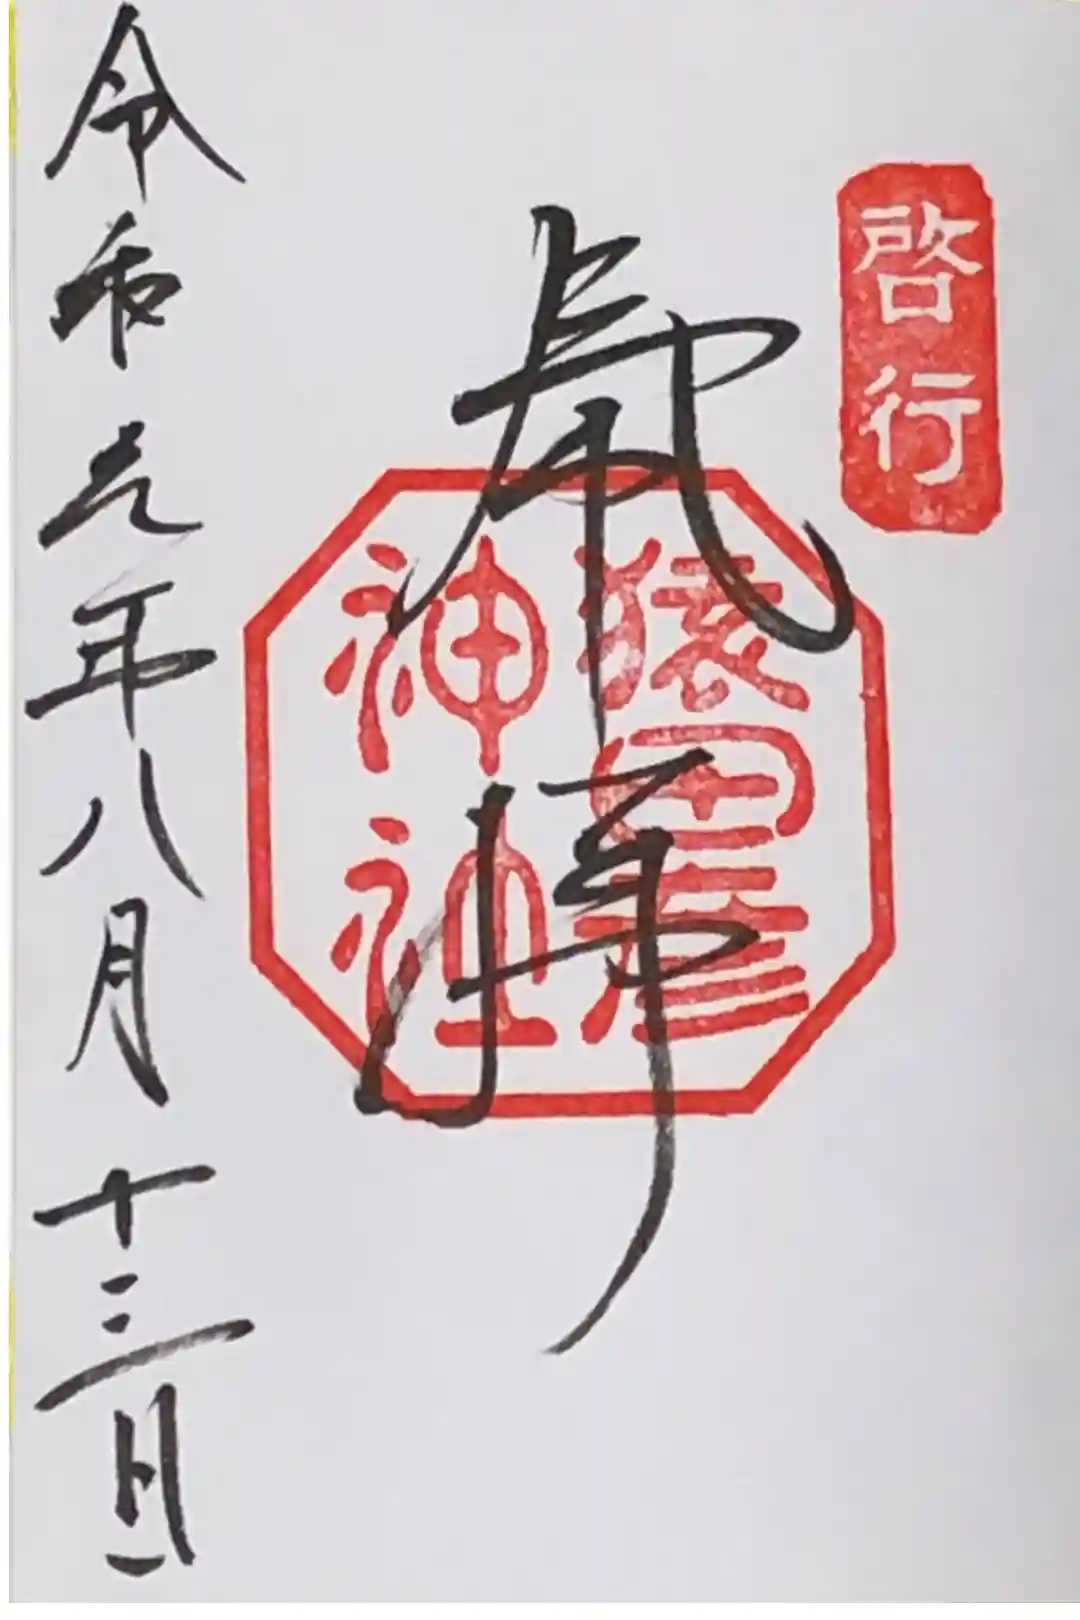 啓行
拝
猿田彦
神社
令和元年八月十三日